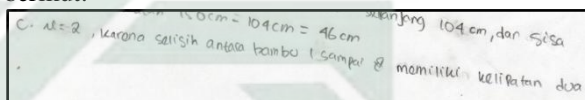 150cm - 104cm = 46cm
104cm, dan sisa
C. n=2, karena selisih antara bambu 1 sampai 8 memiliki kelipatan dua